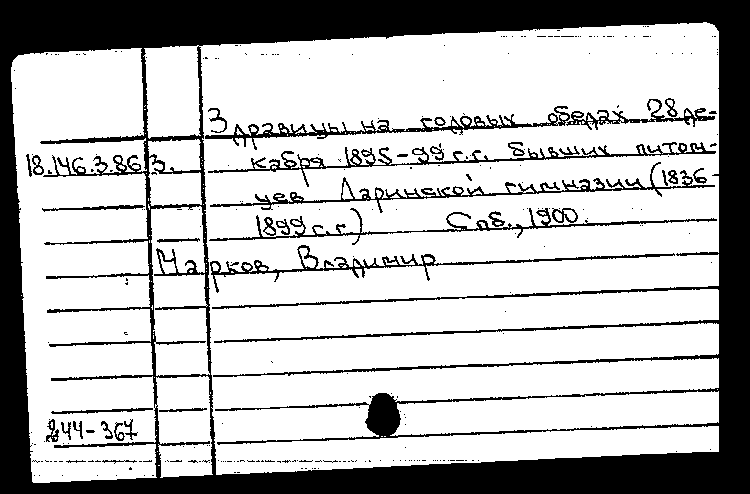 Здравицы на годовых обедах 28 де-
18.146.3.86 3. кабря 1895-99 г.г. бывших питом-
цев Ларинской гимназии (1836-
1899 г.г.) Спб., 1900.
Марков, Владимир
244-367